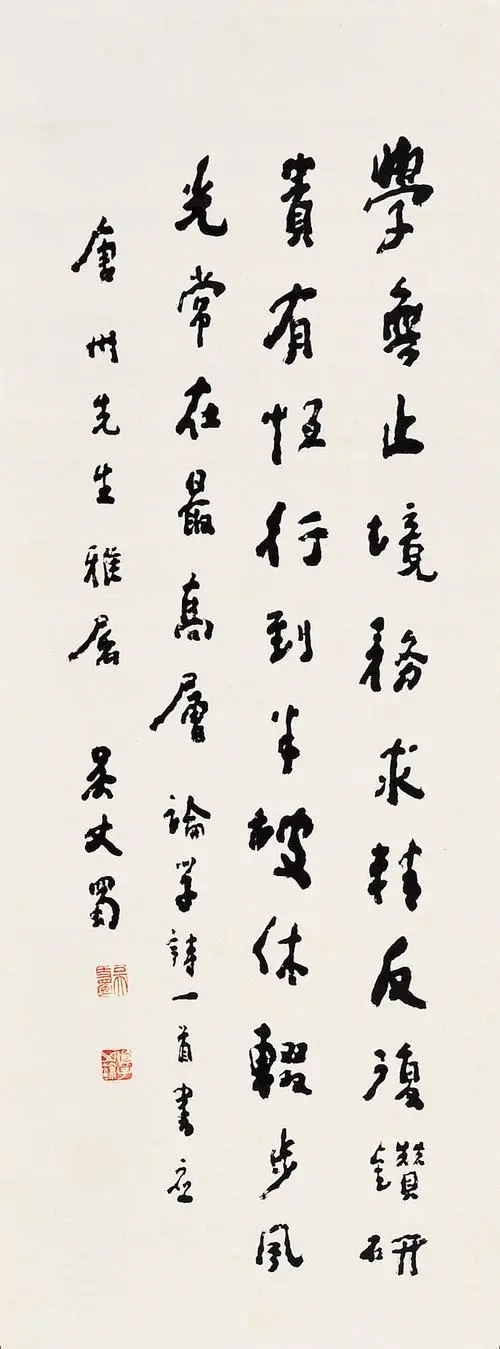 學無止境務求精反復鑽研
貴有恒行到半坡休輟步風
光常在最高層 論學詩一首書應
州先生雅屬 吳丈蜀